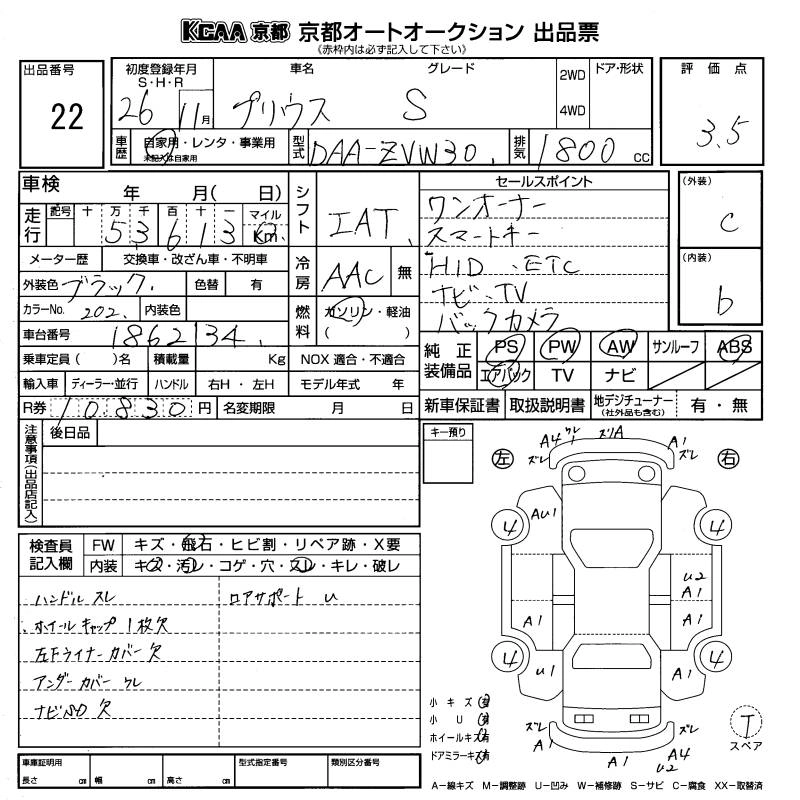 KCAA 京都 京都オートオークション 出品票
《赤枠内は必ず記入して下さい》
出品番号
22
初度登録年月
S・H・R
26 11月
車名 グレード
プリウス S
2WD
4WD
ドア・形状
評価点
3.5
車歴 自家用・レンタ・事業用
未記入は自家用
型式 DAA-ZVW30
排気 1800 cc
車検 年 月( 日)
走行 記号 十 万 千 百 十 一 マイル
5 3 6 1 3 0 Km
メーター歴 交換車・改ざん車・不明車
外装色 ブラック 色替 有
カラーNo. 202 内装色
車台番号 1862134
乗車定員 ( )名 積載量 Kg
輸入車 ディーラー・並行 ハンドル 右H・左H
R券 10830 円 名変期限 月 日
シフト IAT
冷房 AAC 無
燃料 ガソリン・軽油
( )
NOX 適合・不適合
モデル年式 年
セールスポイント
ワンオーナー
スマートキー
HID、ETC
ナビ、TV
バックカメラ
(外装)
C
(内装)
b
純正装備品 PS PW AW サンルーフ ABS
エアバック TV ナビ
新車保証書 取扱説明書 地デジチューナー
(社外品も含む) 有・無
注意事項(出品店記入)
後日品
キー預り
検査員記入欄 FW キズ・飛石・ヒビ割・リペア跡・X要
内装 キズ・汚レ・コゲ・穴・スレ・キレ・破レ
ハンドル スレ
ロアサポート U
ホイールキャップ 1枚欠
左Fライナーカバー欠
アンダーカバー ワレ
ナビSD 欠
左 右
A4 ワレ ズリA A1
ズレ ズレ
AU1
4 4
U2
A1
A1 A1
4 4
U1 A1
小キズ 有
小U 有
ホイールキズ 有
ドアミラーキズ 有
ズレ A1 A1 ズレ
A4
U2
T
スペア
車庫証明用
長さ cm 幅 cm 高さ cm
型式指定番号 類別区分番号
A―線キズ M―調整跡 U―凹み W―補修跡 S―サビ C―腐食 XX―取替済